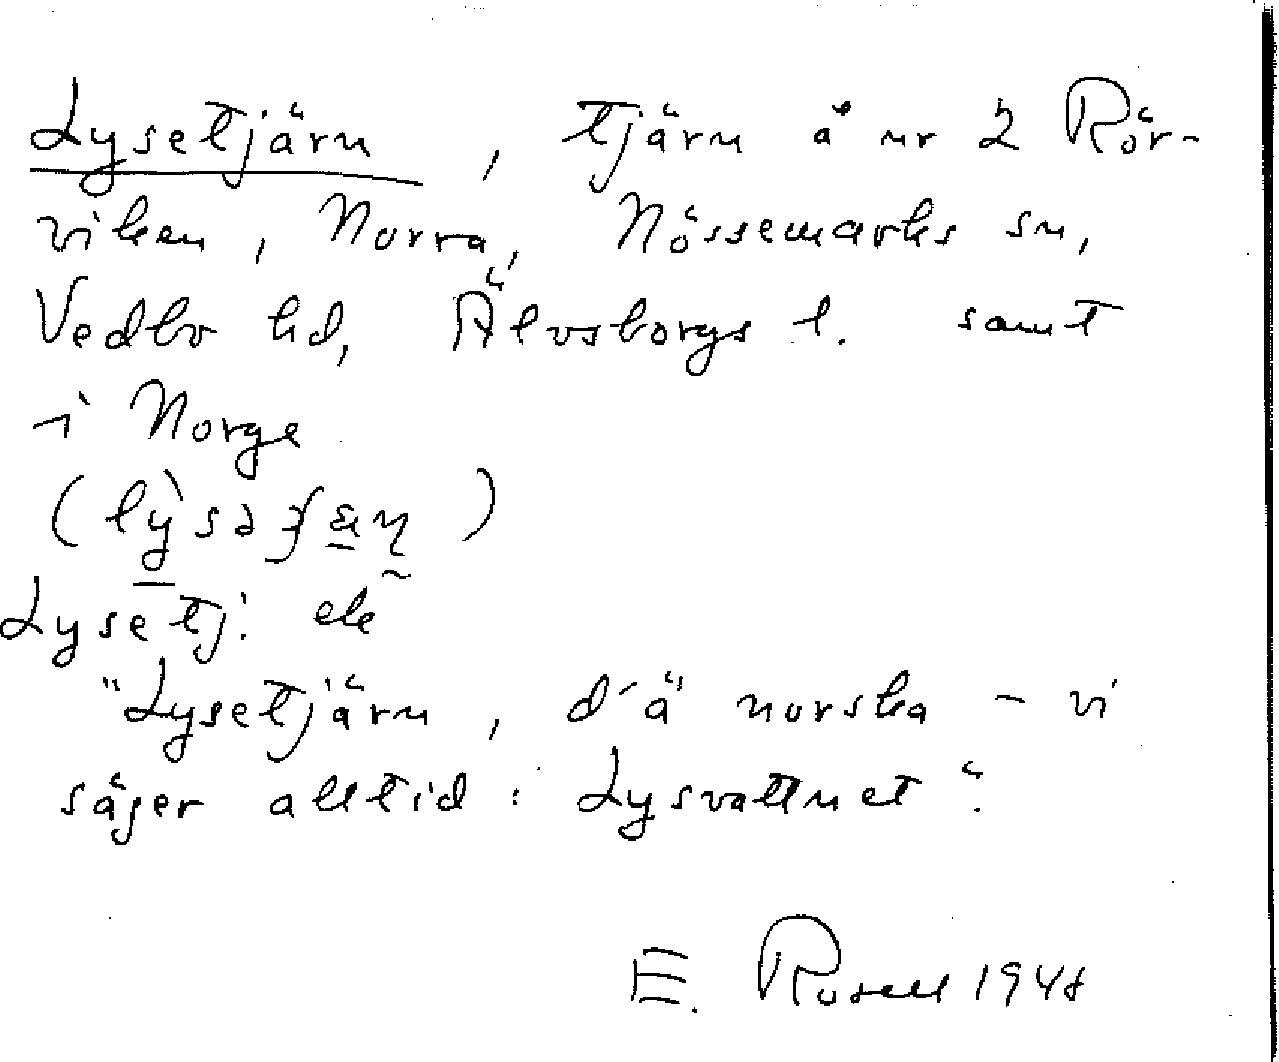 Lysetjärn, tjärn å nr 2 Rör-
viken, Norra, Nössemarks sn,
Vedbo hd, Älvsborgs l. samt
i Norge
Lysetj: ek
"Lysetjärn, d'ä norska - vi
säger alltid: Lysvattnet".
E. Rosell 1948